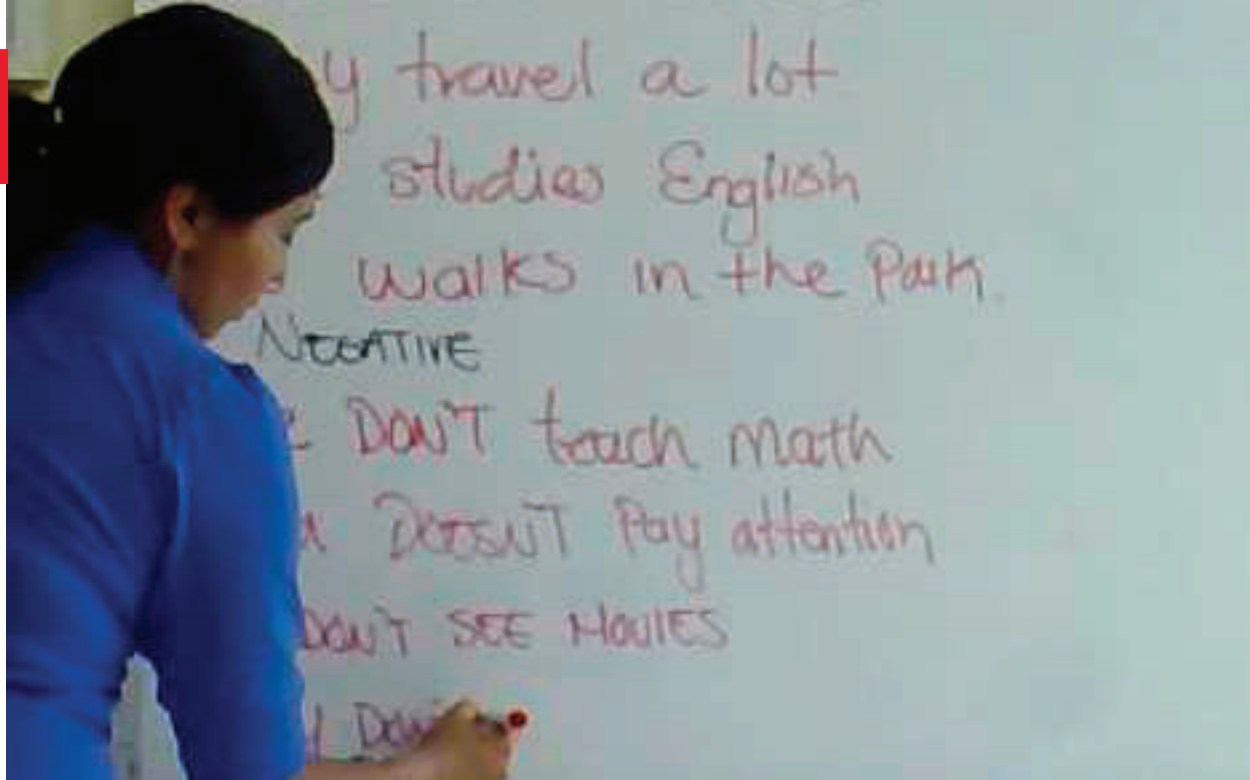 y travel a lot
studies English
walks in the Park.
NEGATIVE
DON'T teach Math
DOESN'T Pay attention
DON'T SEE MOVIES